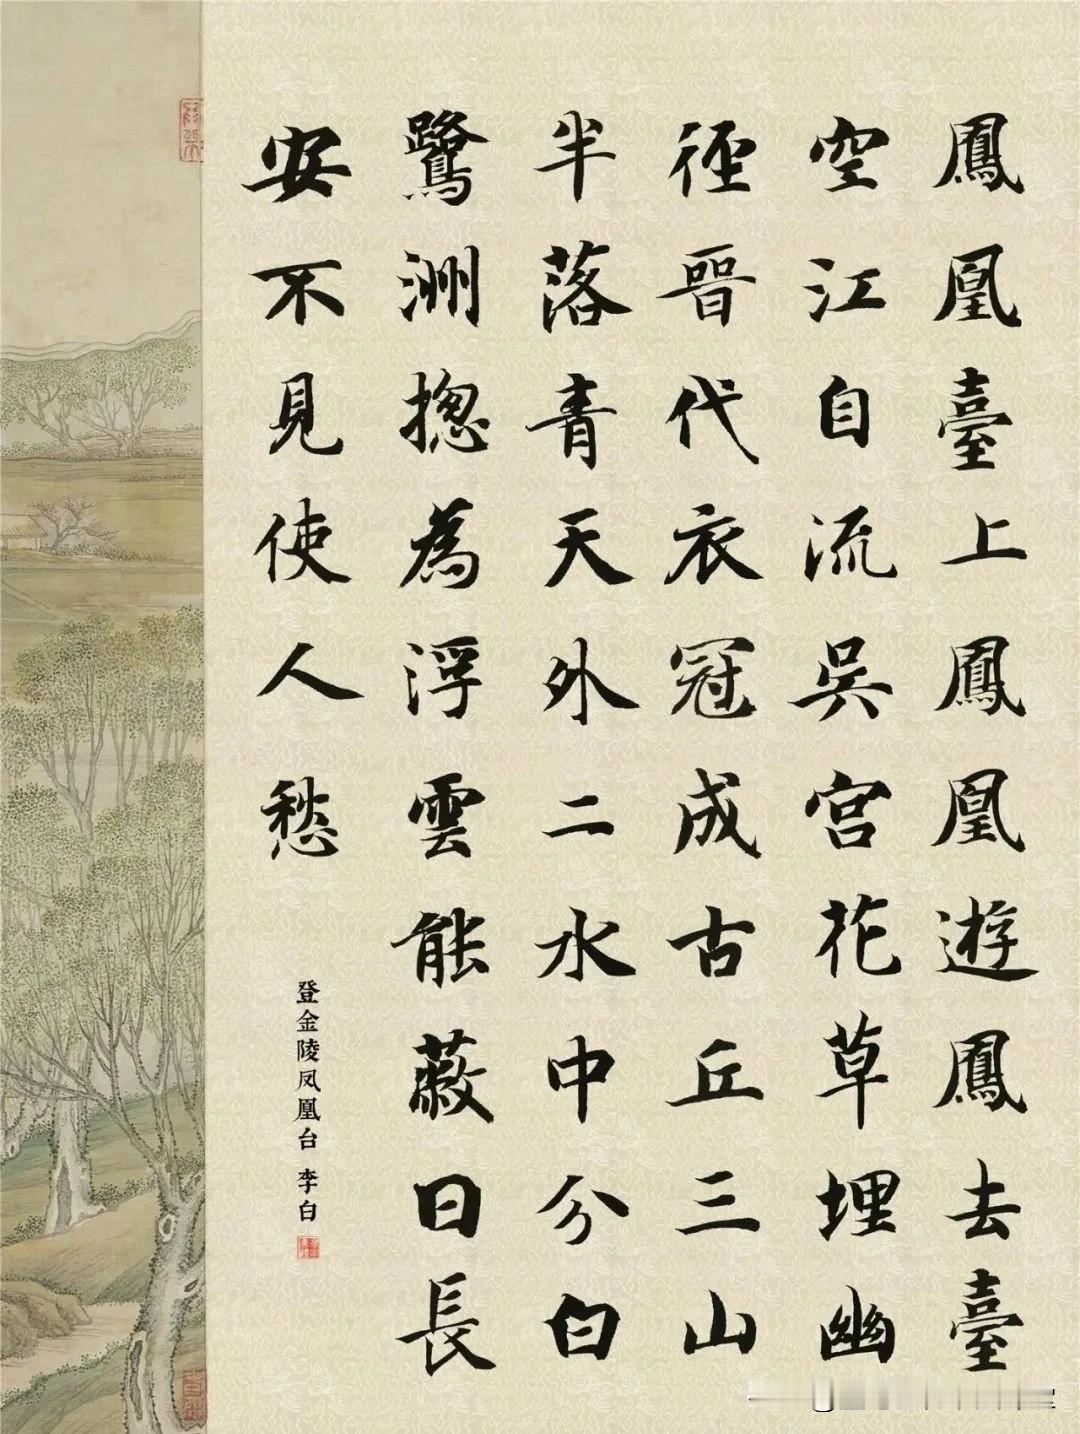 鳳凰臺上鳳凰遊鳳去臺
空江自流吳宮花草埋幽
徑晉代衣冠成古丘三山
半落青天外二水中分白
鷺洲揔為浮雲能蔽日長
安不見使人愁
登金陵凤凰台 李白